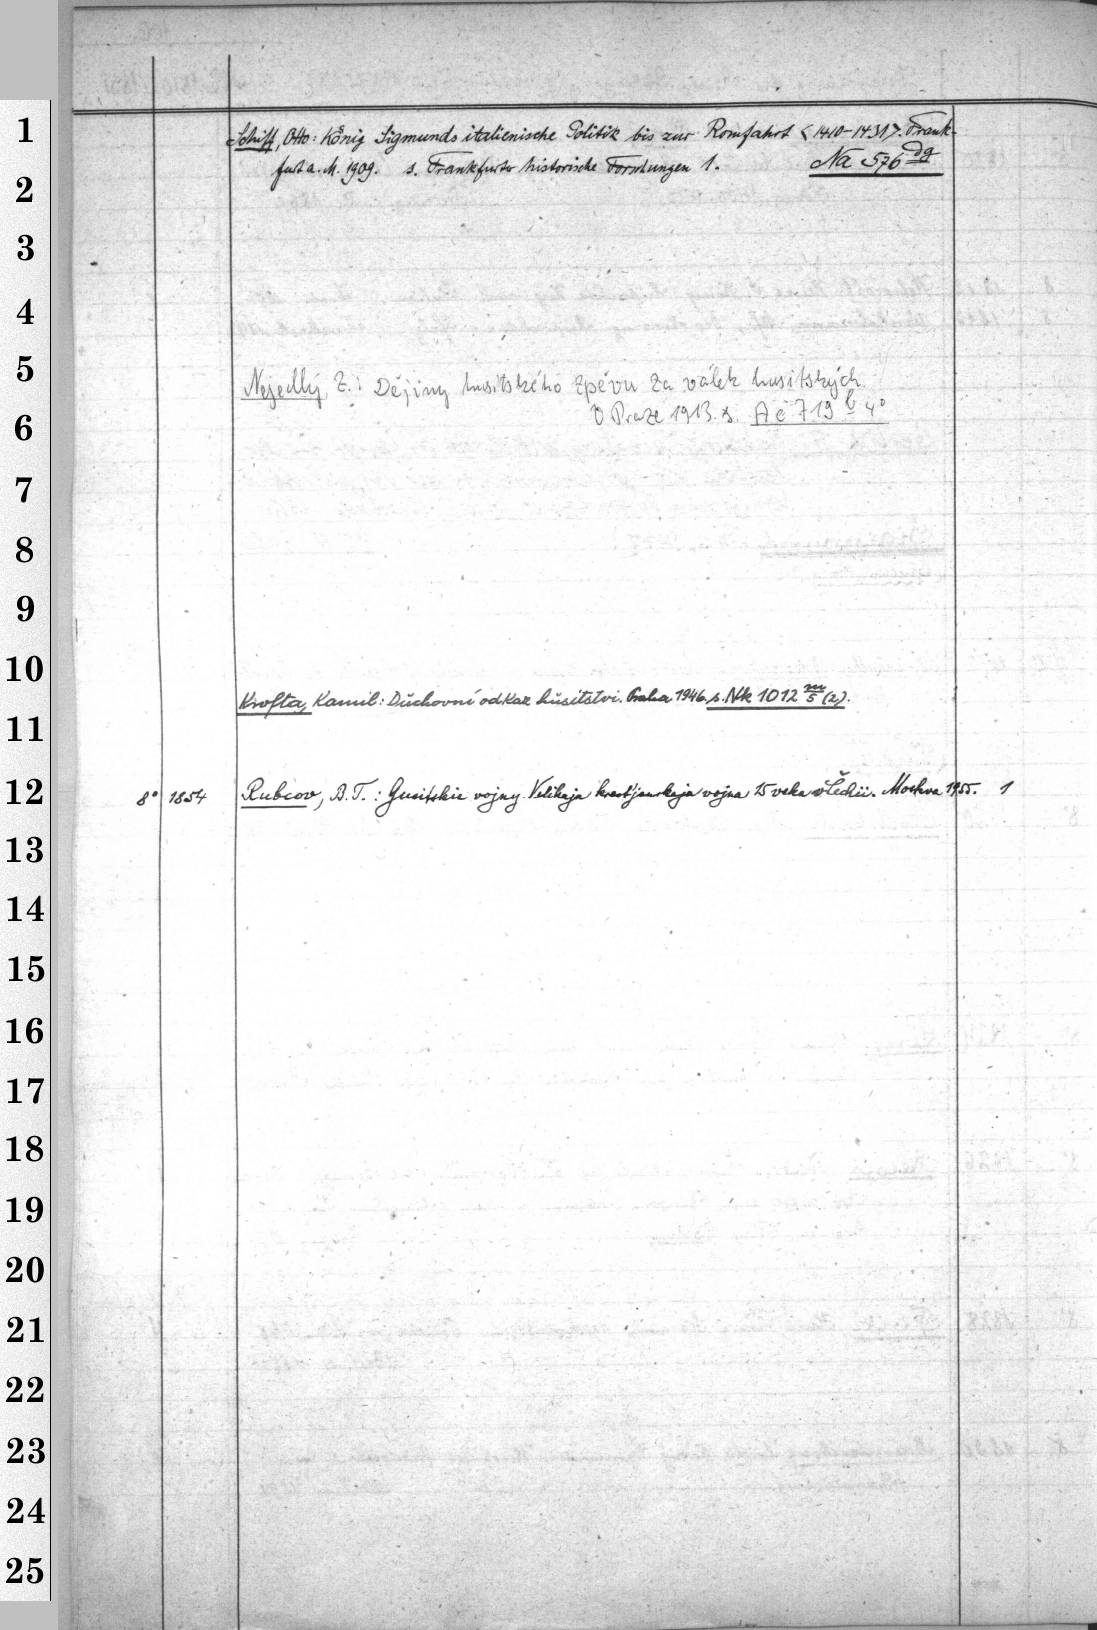 1
Schiff, Otto: König Sigmunds italienische Politik bis zur Romfahrt <1410-1431>. Frank-
furt a. M. 1909. s. Frankfurter historische Forschungen 1. Na 576 dg
2
3
4
5
Nejedlý, Z.: Dějiny husitského zpěvu za válek husitských.
V Praze 1913. s. Ac 719 b 4°
6
7
8
9
10
Krofta, Kamil: Duchovní odkaz husitství. Praha 1946. s. Nk 1012 m/5 (2).
11
12
8° 1854 Rubcov, B. T.: Gusitskie vojny. Velikaja krest'janskaja vojna 15 veka v Čechii. Moskva 1955. 1
13
14
15
16
17
18
19
20
21
22
23
24
25